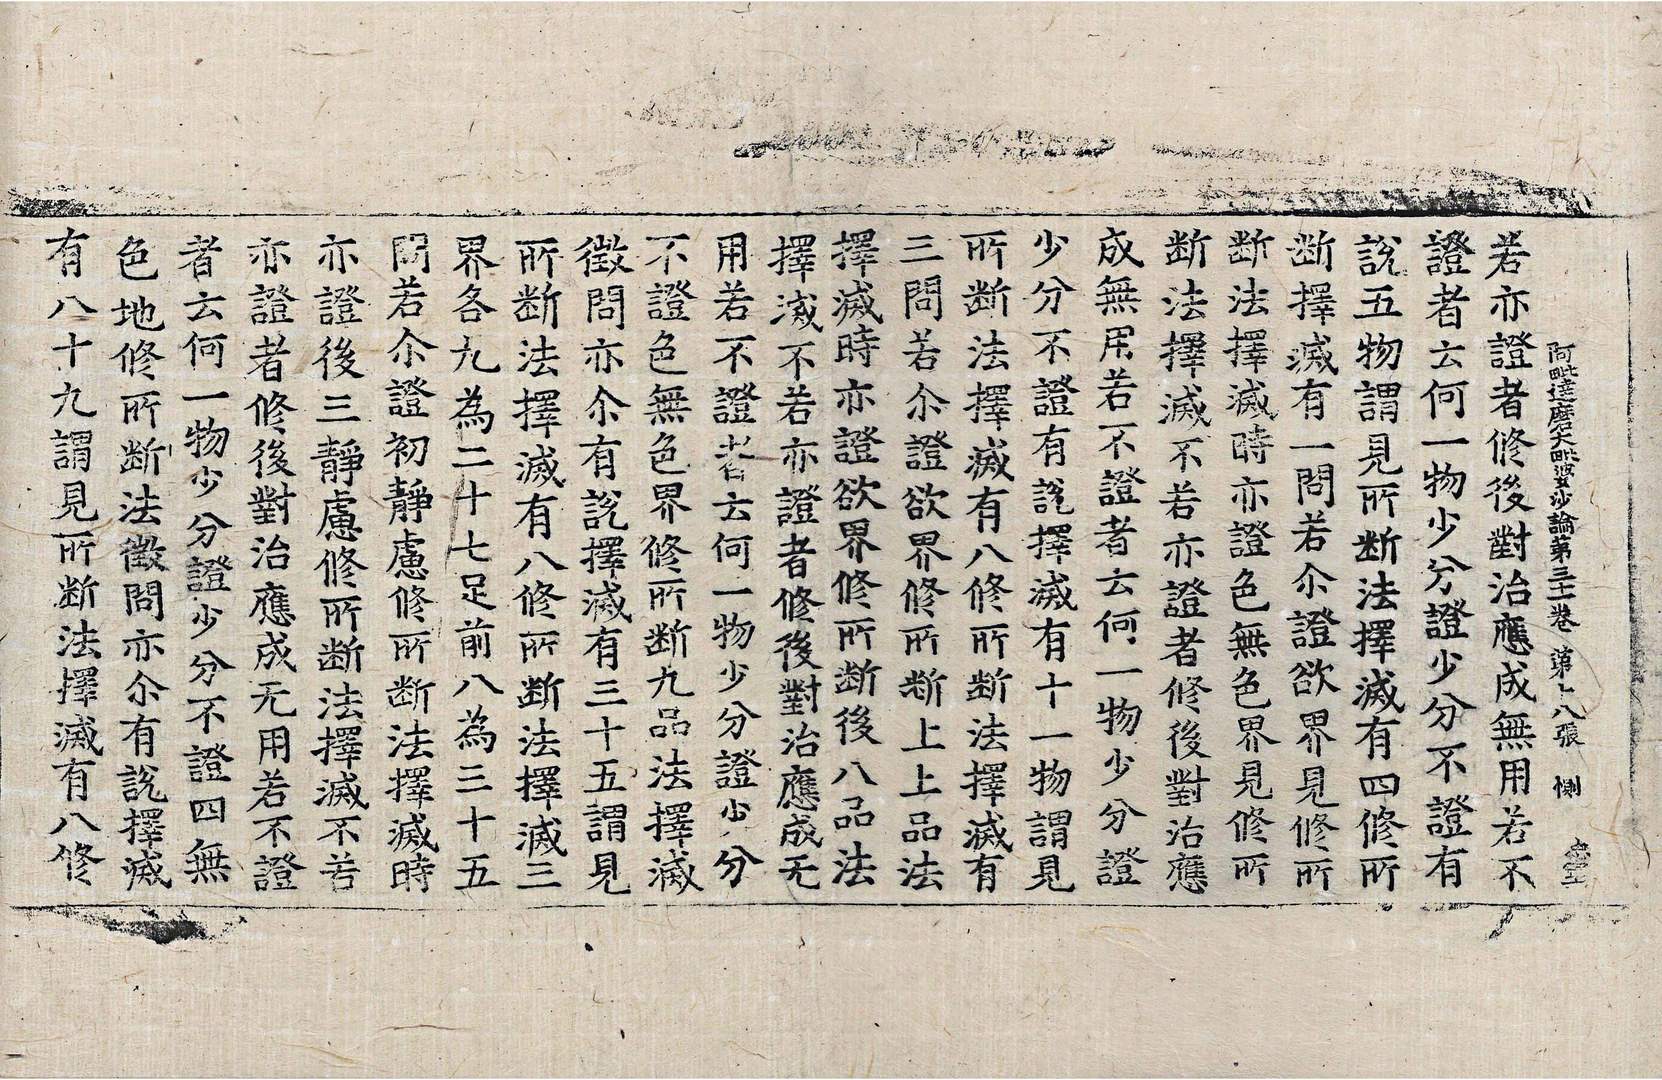 阿毗達磨大毗婆沙論第三十一卷 第十八張 惻
若亦證者修後對治應成無用若不
證者云何一物少分證少分不證有
說五物謂見所斷法擇滅有四修所
斷擇滅有一問若尒證欲界見修所
斷法擇滅時亦證色無色界見修所
斷法擇滅不若亦證者修後對治應
成無用若不證者云何一物少分證
少分不證有說擇滅有十一物謂見
所斷法擇滅有八修所斷法擇滅有
三問若尒證欲界修所斷上上品法
擇滅時亦證欲界修所斷後八品法
擇滅不若亦證者修後對治應成无
用若不證者云何一物少分證少分
不證色無色界修所斷九品法擇滅
徵問亦尒有說擇滅有三十五謂見
所斷法擇滅有八修所斷法擇滅三
界各九為二十七足前八為三十五
問若尒證初靜慮修所斷法擇滅時
亦證後三靜慮修所斷法擇滅不若
亦證者修後對治應成无用若不證
者云何一物少分證少分不證四無
色地修所斷法徵問亦尒有說擇滅
有八十九謂見所斷法擇滅有八修